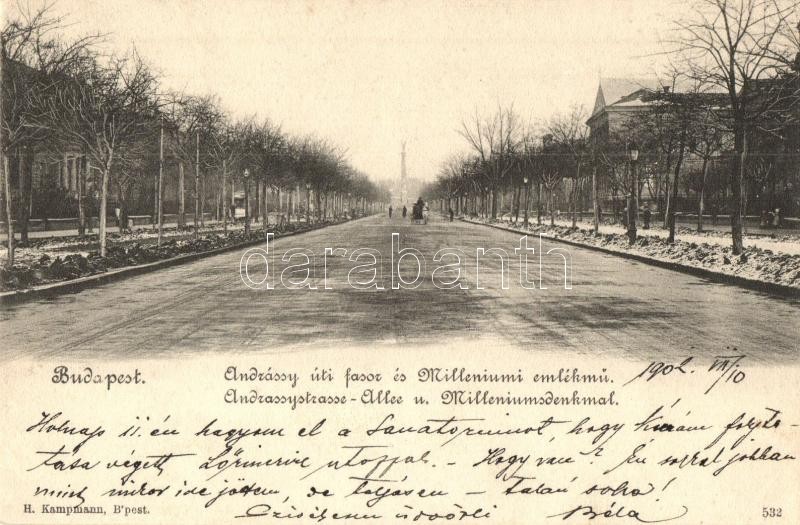 darabanth
Budapest.
Andrássy úti fasor és Milleniumi emlékmű.
Andrassystrasse-Allee u. Milleniumsdenkmal.
1902 VII/10
Holnap 11.én hagyom el a Sanatoriumot, hogy kúrám folyta-
tása végett Lőrinczre utazzak. - Hogy van? Én sokkal jobban
mint mikor ide jöttem, de teljesen - talán soha!
őszintén üdvözli Béla
H. Kampmann, B'pest.
532